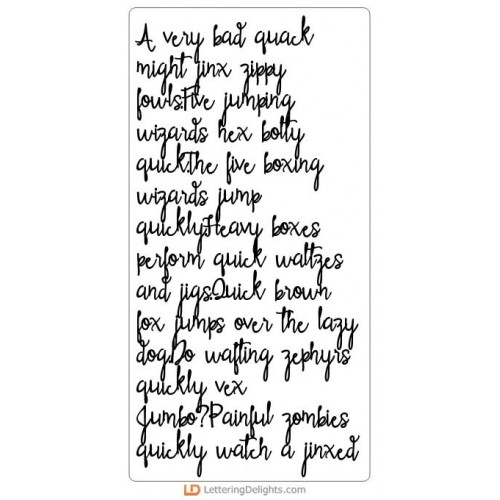 A very bad quack
might jinx zippy
fowls.Five jumping
wizards hex bolty
quick.The five boxing
wizards jump
quickly.Heavy boxes
perform quick waltzes
and jigs.Quick brown
fox jumps over the lazy
dog.Do wafting zephyrs
quickly vex
Jumbo?Painful zombies
quickly watch a jinxed
LD LetteringDelights.com